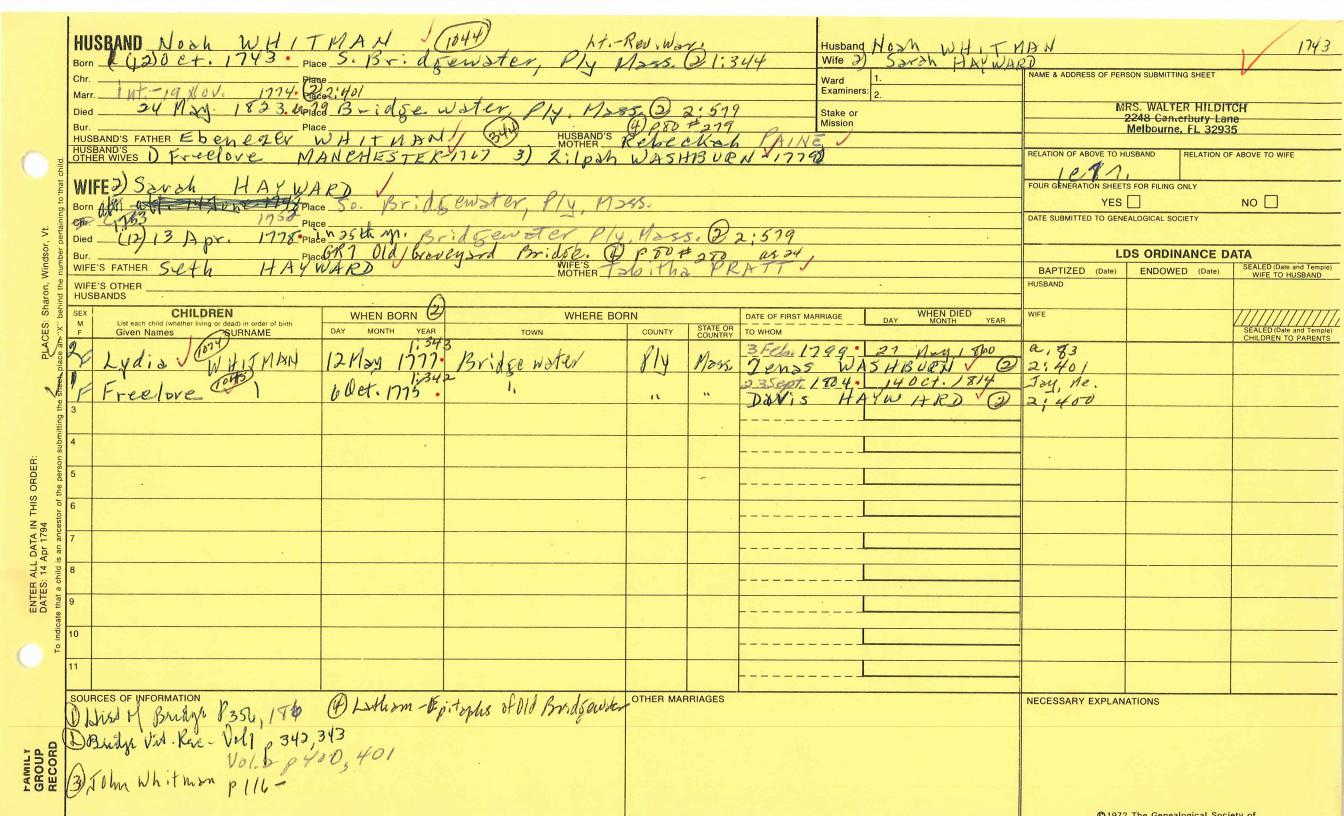 HUSBAND Noah WHITMAN 1044 Lt.-Rev. War.
Born (12) Oct. 1743 Place S. Bridgewater, Ply Mass. ② 1:344
Chr. Place
Marr. Int.-19 Nov. 1774 Place ② 2:401
Died 24 May 1823 Place Bridgewater, Ply. Mass. ② 2:579
Bur. Place ④ p80 #279
HUSBAND'S FATHER Ebenezer WHITMAN 344 HUSBAND'S MOTHER Rebeckah PAINE
HUSBAND'S OTHER WIVES 1) Freelove MANCHESTER 1767 3) Zilpah WASHBURN 1779
WIFE 2) Sarah HAYWARD
Born 1753 1752 Place So. Bridgewater, Ply, Mass.
Chr. Place
Died (12) 13 Apr. 1778 Place in 25th yr. Bridgewater Ply, Mass. ② 2:579
Bur. Place GR7 Old Graveyard Bridge. ④ p 80 # 280 ae 24
WIFE'S FATHER Seth HAYWARD WIFE'S MOTHER Tabitha PRATT
WIFE'S OTHER HUSBANDS
Husband Noah WHITMAN 1743
Wife 2) Sarah HAYWARD
Ward Examiners: 1.
2.
Stake or Mission
NAME & ADDRESS OF PERSON SUBMITTING SHEET
MRS. WALTER HILDITCH
2248 Canterbury Lane
Melbourne, FL 32935
RELATION OF ABOVE TO HUSBAND RELATION OF ABOVE TO WIFE
FOUR GENERATION SHEETS FOR FILING ONLY
YES NO
DATE SUBMITTED TO GENEALOGICAL SOCIETY
LDS ORDINANCE DATA
BAPTIZED (Date) ENDOWED (Date) SEALED (Date and Temple) WIFE TO HUSBAND
HUSBAND
WIFE
SEALED (Date and Temple) CHILDREN TO PARENTS
SEX M F CHILDREN WHEN BORN ② WHERE BORN DATE OF FIRST MARRIAGE WHEN DIED
List each child (whether living or dead) in order of birth
Given Names SURNAME DAY MONTH YEAR TOWN COUNTY STATE OR COUNTRY TO WHOM DAY MONTH YEAR
1:343
2 F Lydia 1074 WHITMAN 12 May 1777 Bridgewater Ply Mass 3 Feb. 1799 27 May, 1860 a. 83
Zenas WASHBURN ② 2:401
1:342
1 F Freelove 1075 6 Oct. 1775 " " " 23 Sept. 1804 14 Oct. 1814 Jay, Me.
Davis HAYWARD ② 2:400
3
4
5
6
7
8
9
10
11
SOURCES OF INFORMATION
① Hist of Bridge P 356, 186 ④ Latham-Epitaphs of Old Bridgewater
② Bridge Vit. Rec.- Vol 1 p 342,343
Vol. 2 p 400, 401
③ John Whitman p 116 -
OTHER MARRIAGES
NECESSARY EXPLANATIONS
©1972 The Genealogical Society of
FAMILY GROUP RECORD
ENTER ALL DATA IN THIS ORDER:
DATES: 14 Apr 1794
PLACES: Sharon, Windsor, Vt.
To indicate that a child is an ancestor of the person submitting the sheet, place an "X" behind the number pertaining to that child.